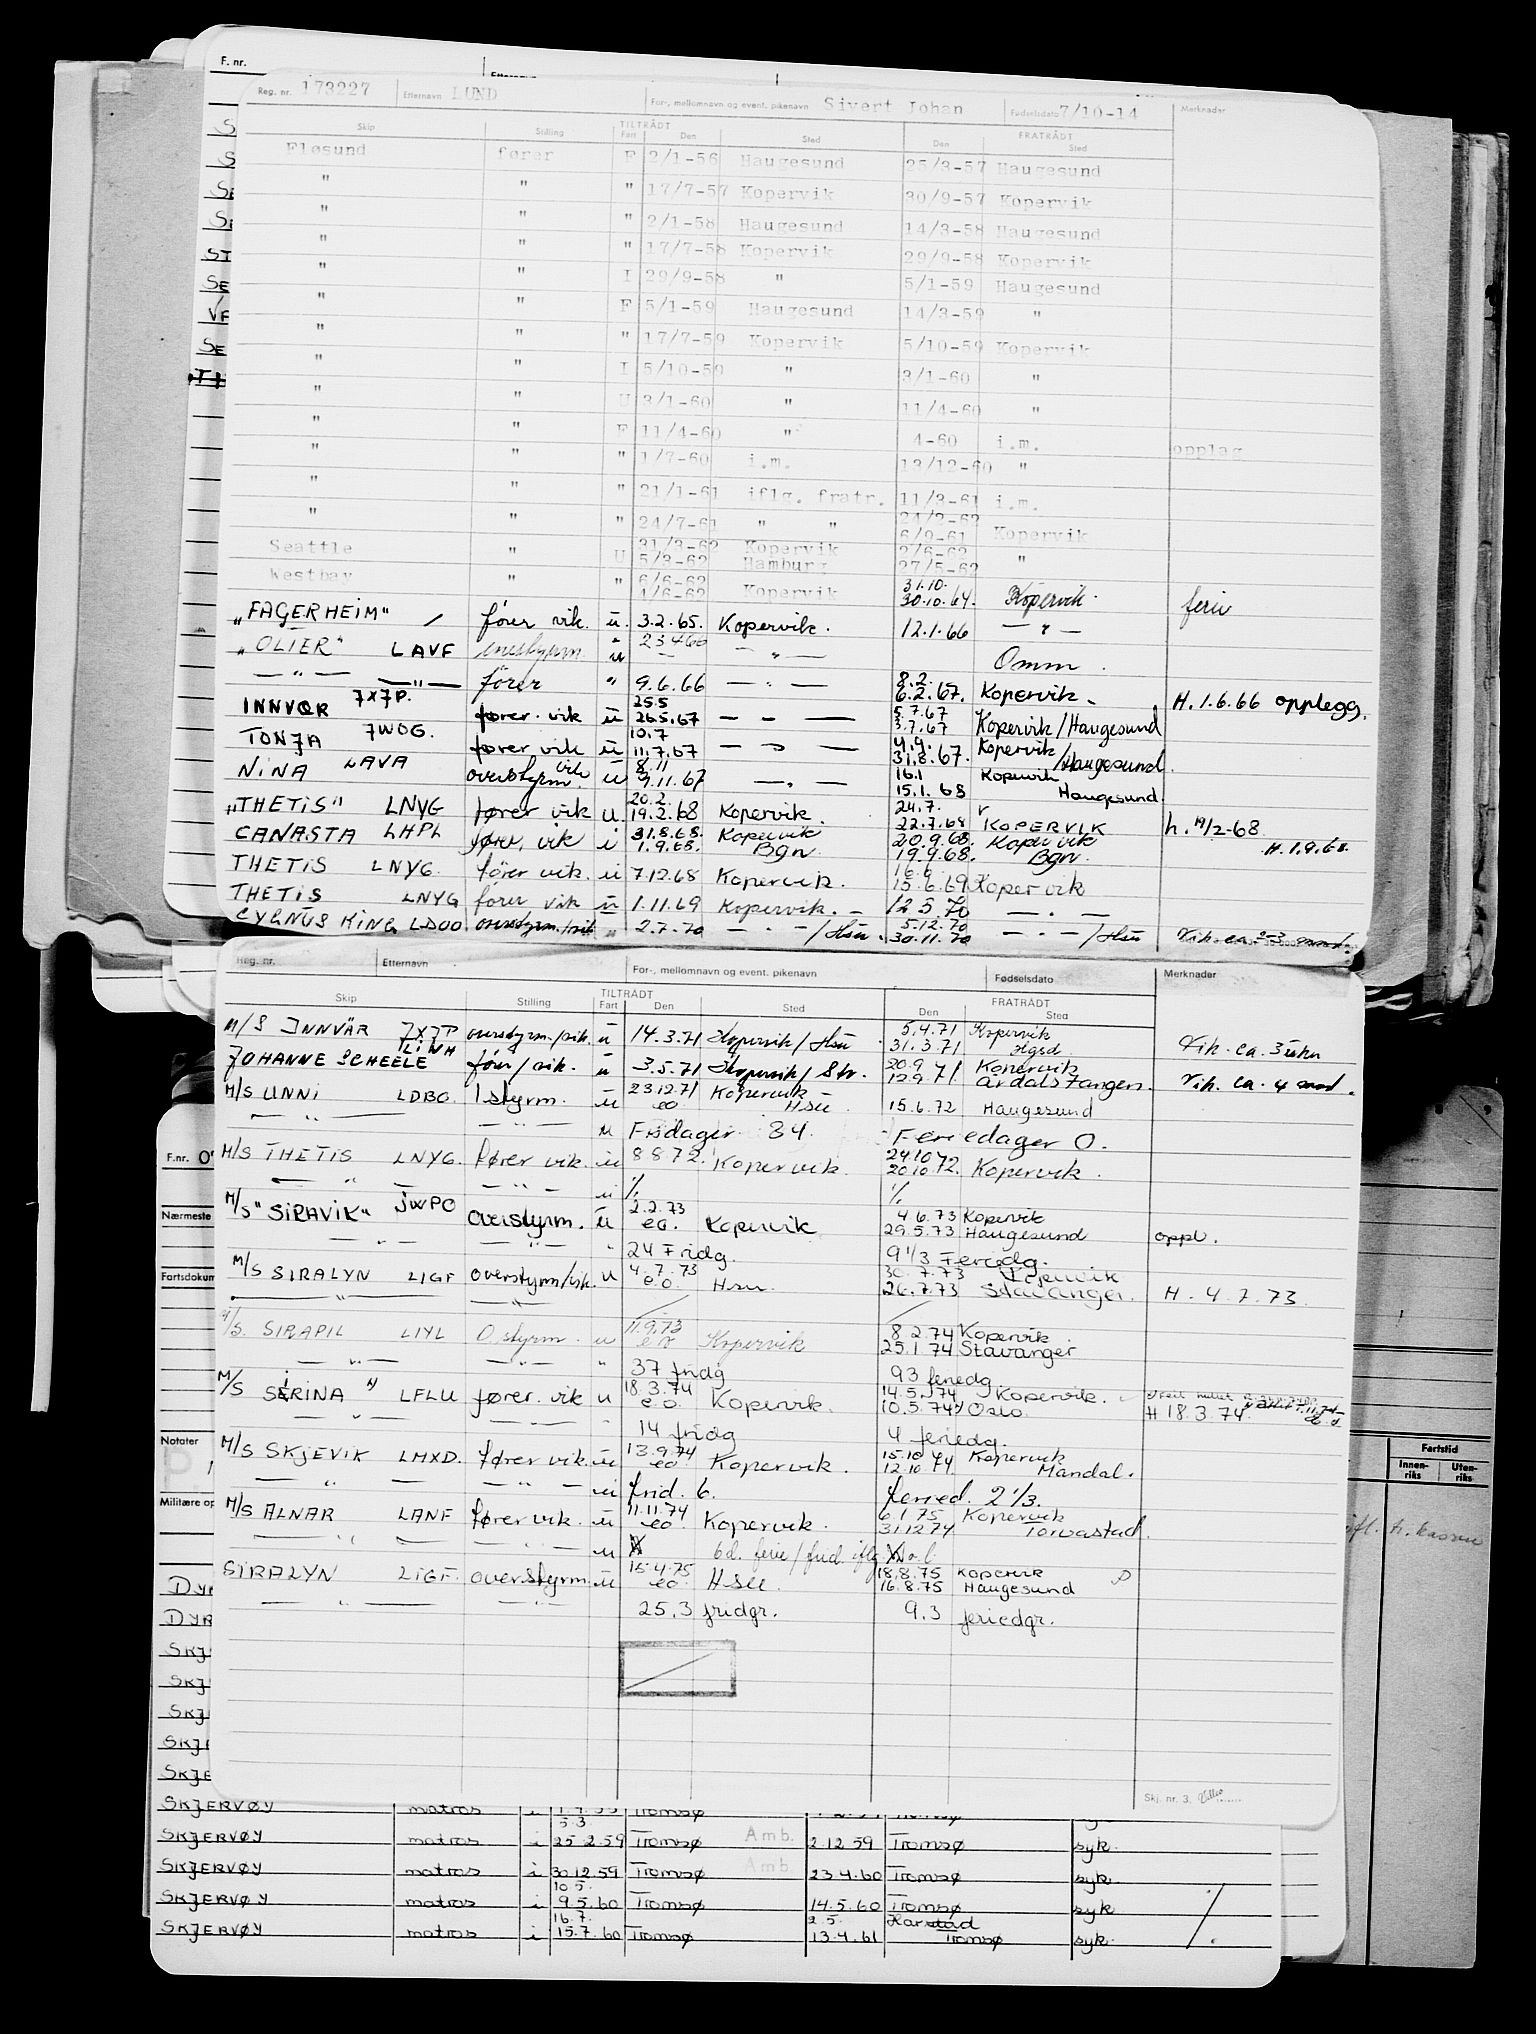 F. nr.
Reg. nr. 173227 Etternavn LUND For-, mellomnavn og event. pikenavn Sivert Johan Fødselsdato 7/10-14 Merknader
TILTRÅDT FRATRÅDT
Skip Stilling Fart Den Sted Den Sted
Fløsund fører F 2/1-56 Haugesund 25/3-57 Haugesund
" " " 17/7-57 Kopervik 30/9-57 Kopervik
" " " 2/1-58 Haugesund 14/3-58 Haugesund
" " " 17/7-58 Kopervik 29/9-58 Kopervik
" " I 29/9-58 " 5/1-59 Haugesund
" " F 5/1-59 Haugesund 14/3-59 "
" " " 17/7-59 Kopervik 5/10-59 Kopervik
" " I 5/10-59 " 3/1-60 "
" " U 3/1-60 " 11/4-60 "
" " F 11/4-60 " 4-60 i.m. opplag
" " " 1/7-60 i.m. 13/12-60 "
" " " 21/1-61 iflg. fratr. 11/3-61 i.m.
" " " 24/7-61 " " 24/2-62
6/9-61 Kopervik
31/3-62 Kopervik 2/6-62
Seattle " U 5/3-62 Hamburg 27/5-62 "
6/6-62 31.10.
Westbay " " 4/6-62 Kopervik 30.10.64. Kopervik. ferie
"FAGERHEIM" fører vik. ü. 3.2.65. Kopervik. 12.1.66 — " —
"OLIER" LAVF enestyrm. ü 23.4.66 — " — Omm.
— " — — " — fører " 9.6.66 — " — 8.2.
6.2.67. Kopervik. H. 1.6.66 opplegg.
INNVÆR 7X7P. fører. vik ü 25.5
26.5.67 — " — 5.7.67
3.7.67 Kopervik/Haugesund
TONJA JWOG. fører vik ü 10.7
11.7.67 — " — 4.9.
31.8.67. Kopervik/Haugesund.
NINA LAVA overstyrm. vik ü 8.11
9.11.67 — " — 16.1
15.1.68 Kopervik
Haugesund.
"THETIS" LNYG fører vik u 20.2.
19.2.68 Kopervik. 24.7.
22.7.68 KOPERVIK h. 19/2-68
CANASTA LHPL fører. vik i 31.8.68. Kopervik 20.9.68. Kopervik H. 1.9.68.
1.9.68. Bgn 19.9.68. Bgn.
THETIS LNYG. fører vik. ü 7.12.68 Kopervik. 16.6
15.6.69 Kopervik
THETIS LNYG fører vik ü 1.11.69 Kopervik. 12.5.70 — " —
CYGNUS KING LDUO. overstyrm./vik " 2.7.70 — " — /Hsu. 5.12.70
30.11.70 — " — /Hsu Vik. ca. 2-3 mnd.
Reg. nr. Etternavn For-, mellomnavn og event. pikenavn Fødselsdato Merknader
TILTRÅDT FRATRÅDT
Skip Stilling Fart Den Sted Den Sted
M/S INNVÄR 7X7P overstyrm./vik. ü 14.3.71 Kopervik/Hsu 5.4.71 Kopervik
31.3.71 Hgsd Vik. ca. 3 uker
JOHANNE SCHEELE LINH fører/vik. ü 3.5.71 Kopervik/Stv. 20.9.71 Kopervik
12.9.71 Årdalstangen. Vik. ca. 4 mnd.
M/S UNNI LDBO. 1styrm. ü 23.12.71 Kopervik
eo Hsu. 15.6.72 Haugesund
— " — — " — u Fridager 34. Feriedager 0.
M/S THETIS LNYG. fører vik. ü 8.8.72. Kopervik. 24.10.72
20.10.72. Kopervik.
— " — — " — ü ./. ./.
M/S "SIRAVIK" JWPO overstyrm. ü 2.2.73
eo. Kopervik 4.6.73 Kopervik
29.5.73 Haugesund oppl.
— " — — " — " 24 Fridg. 9 1/3 Feriedg.
M/S SIRALYN LIGF overstyrm/vik. u 4.7.73
e.o. Hsu. 30.7.73 Kopervik
26.7.73 Stavanger. H. 4.7.73.
— " — — " —
M/S. SIRAPIL LIYL O.styrm. u 11.9.73
eo Kopervik 8.2.74 Kopervik.
25.1.74 Stavanger
— " — — " — " 37 fridg 93 feriedg.
M/S SIRINA LFLU fører. vik u 18.3.74
e.o. Kopervik. 14.5.74 Kopervik.
10.5.74 Oslo. H 18.3.74.
— " — — " — " 14 fridg 4 feriedg.
M/S SKJEVIK LMXD. fører vik. ü 13.9.74
eo Kopervik. 15.10.74 Kopervik
12.10.74 Mandal.
— " — — " — ü frid. 6. feried. 2 1/3.
M/S ALNAR LANF fører vik. ü 11.11.74
eo. Kopervik. 6.1.75 Kopervik
31.12.74 Torvastad.
— " — — " — u bd. ferie/frid. iflg.
SIRALYN LIGF. overstyrm. ü 15.4.75
eo Hsu. 18.8.75 Kopervik
16.8.75 Haugesund
— " — — " — 25,3 fridgr. 9.3 feriedgr.
Skj. nr. 3.
F.nr.
Nærmeste
Fartsdokum
Notater
Militære op
Fartstid
Innen-riks Uten-riks
SKJERVØY matros i Tromsø
SKJERVØY matros i 5.3.
25.2.59 Tromsø Amb. 2.12.59 Tromsø syk.
SKJERVØY matros i 30.12.59 Tromsø Amb. 23.4.60 Tromsø syk.
SKJERVØY matros i 10.5.
9.5.60 Tromsø 14.5.60 Tromsø syk
SKJERVØY matros i 16.7.
15.7.60 Tromsø 2.5. Harstad
13.4.61 Tromsø syk.